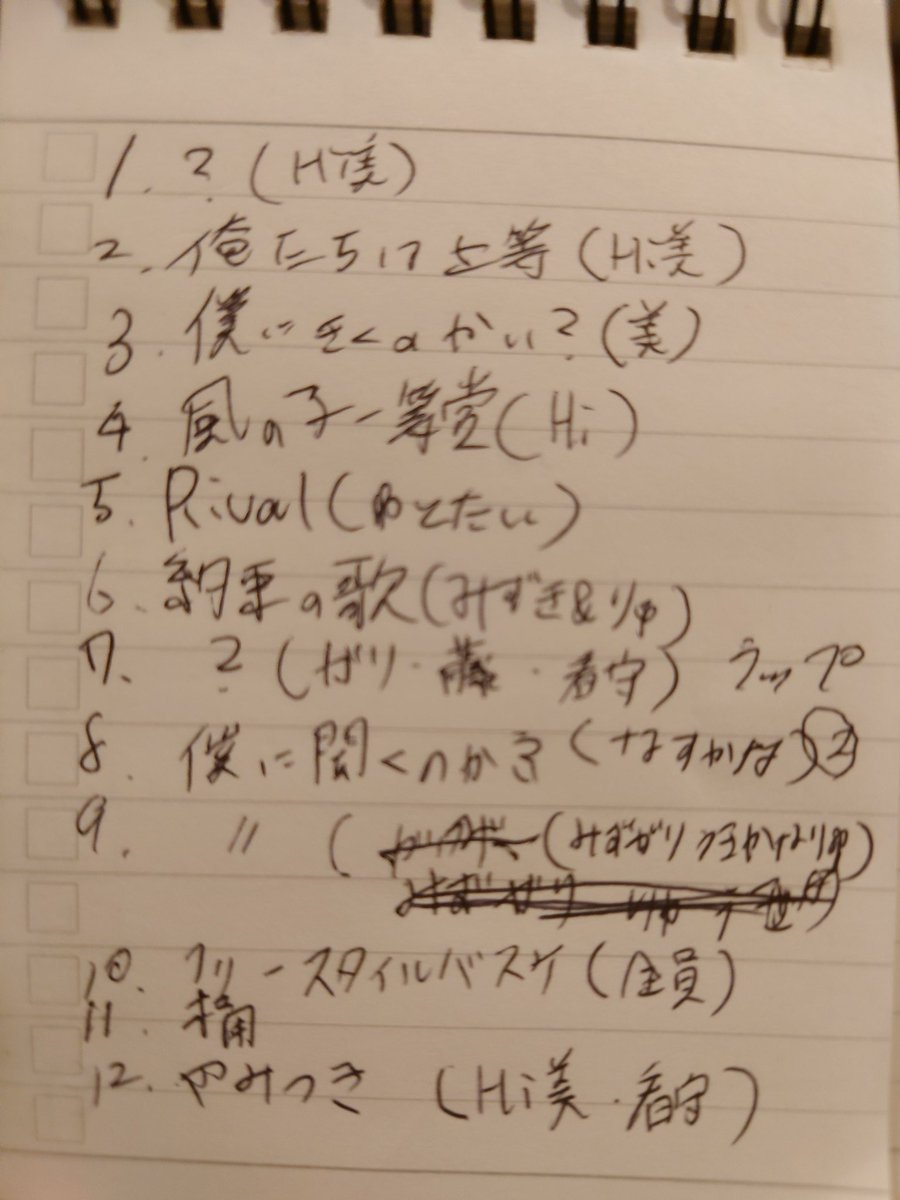 1. ? (Hi美)
2. 俺たちは上等 (Hi美)
3. 僕にきくのかい? (美)
4. 風の子一等賞 (Hi)
5. Rival (ゆとたい)
6. 約束の歌 (みずき&りゅ)
7. ? (ガリ・藤・看守) ラップ
8. 僕に聞くのかい (なすかな) ②
9. 〃 ( (みずがり かなりゅ)
10. フリースタイルバスケ (全員)
11. 桶
12. やみつき (Hi美・看守)